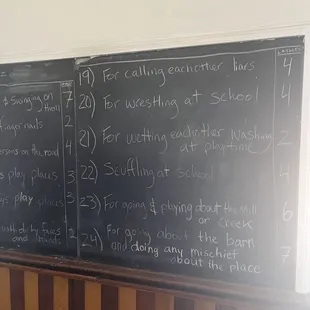 & Swinging on 7
them
finger nails 2
ersons on the road 4
s play places 3
ys play places 3
with dirty faces 2
and hands
LASHES
19) For calling eachother liars 4
20) For wrestling at school 4
21) For wetting eachother Washing 2
at playtime
22) Scuffling at school 4
23) For going & playing about the mill 6
or creek
24) For going about the barn 7
and doing any mischief
about the place